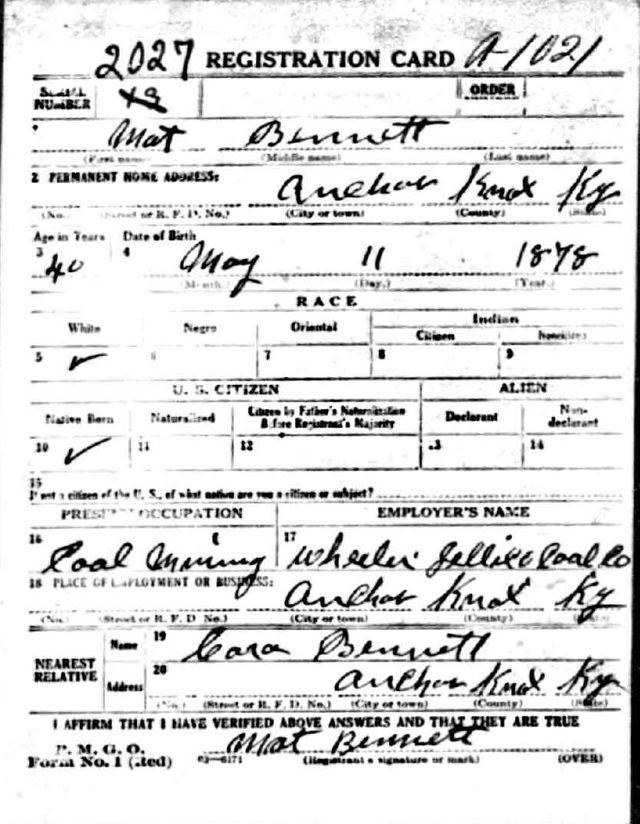 2027 REGISTRATION CARD A-1021
SERIAL NUMBER ORDER
Mat Bennett
(First name) (Middle name) (Last name)
2 PERMANENT HOME ADDRESS:
Anchor Knox Ky
(No.) (Street or R. F. D. No.) (City or town) (County) (State)
Age in Years Date of Birth
3 40 4 May 11 1878
(Month.) (Day.) (Year.)
RACE
White Negro Oriental Indian
Citizen Noncitizen
5 ✓ 6 7 8 9
U. S. CITIZEN ALIEN
Native Born Naturalized Citizen by Father's Naturalization Before Registrant's Majority Declarant Non-declarant
10 ✓ 11 12 13 14
15
If not a citizen of the U. S., of what nation are you a citizen or subject?
PRESENT OCCUPATION EMPLOYER'S NAME
16 Coal Mining 17 Wheeler Jellico Coal Co
18 PLACE OF EMPLOYMENT OR BUSINESS:
Anchor Knox Ky
(No.) (Street or R. F. D. No.) (City or town) (County) (State)
NEAREST RELATIVE
Name 19 Cora Bennett
Address 20 Anchor Knox Ky
(No.) (Street or R. F. D. No.) (City or town) (County) (State)
I AFFIRM THAT I HAVE VERIFIED ABOVE ANSWERS AND THAT THEY ARE TRUE
P. M. G. O.
Form No. 1 (Red) 03—6171 Mat Bennett
(Registrant's signature or mark) (OVER)